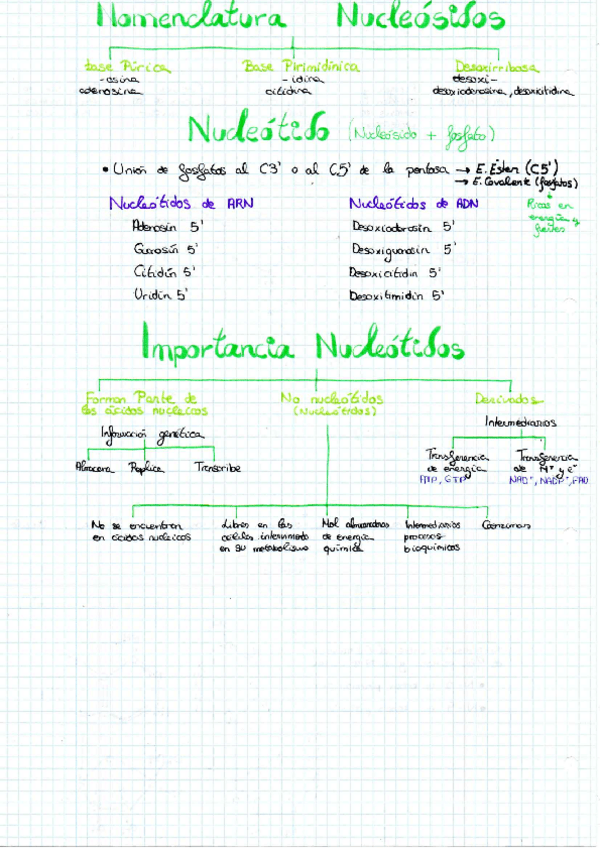 Nomenclatura Nucleósidos
Base Púrica Base Pirimidínica Desoxirribosa
-osina -idina desoxi-
adenosina citidina desoxiadenosina, desoxicitidina
Nucleótido (Nucleósido + fosfato)
• Unión de fosfatos al C3' o al C5' de la pentosa → E. Éster (C5')
→ E. Covalente (fosfatos)
Nucleótidos de ARN Nucleótidos de ADN Ricos en
energía y
fuertes
Adenosín 5' Desoxiadenosín 5'
Guanosín 5' Desoxiguanosín 5'
Citidín 5' Desoxicitidín 5'
Uridín 5' Desoxitimidín 5'
Importancia Nucleótidos
Forman Parte de No nucleótidos Derivados
los ácidos nucleicos (Nucleótidos)
Intermediarios
Información genética
Almacena Replica Transcribe
Transferencia Transferencia
de energía de H⁺ y e⁻
ATP, GTP NAD⁺, NADP⁺, FAD
No se encuentran Libres en las Mol almacenadoras Intermediarios Coenzimas
en ácidos nucleicos células, interviniendo de energía procesos
en su metabolismo química bioquímicos